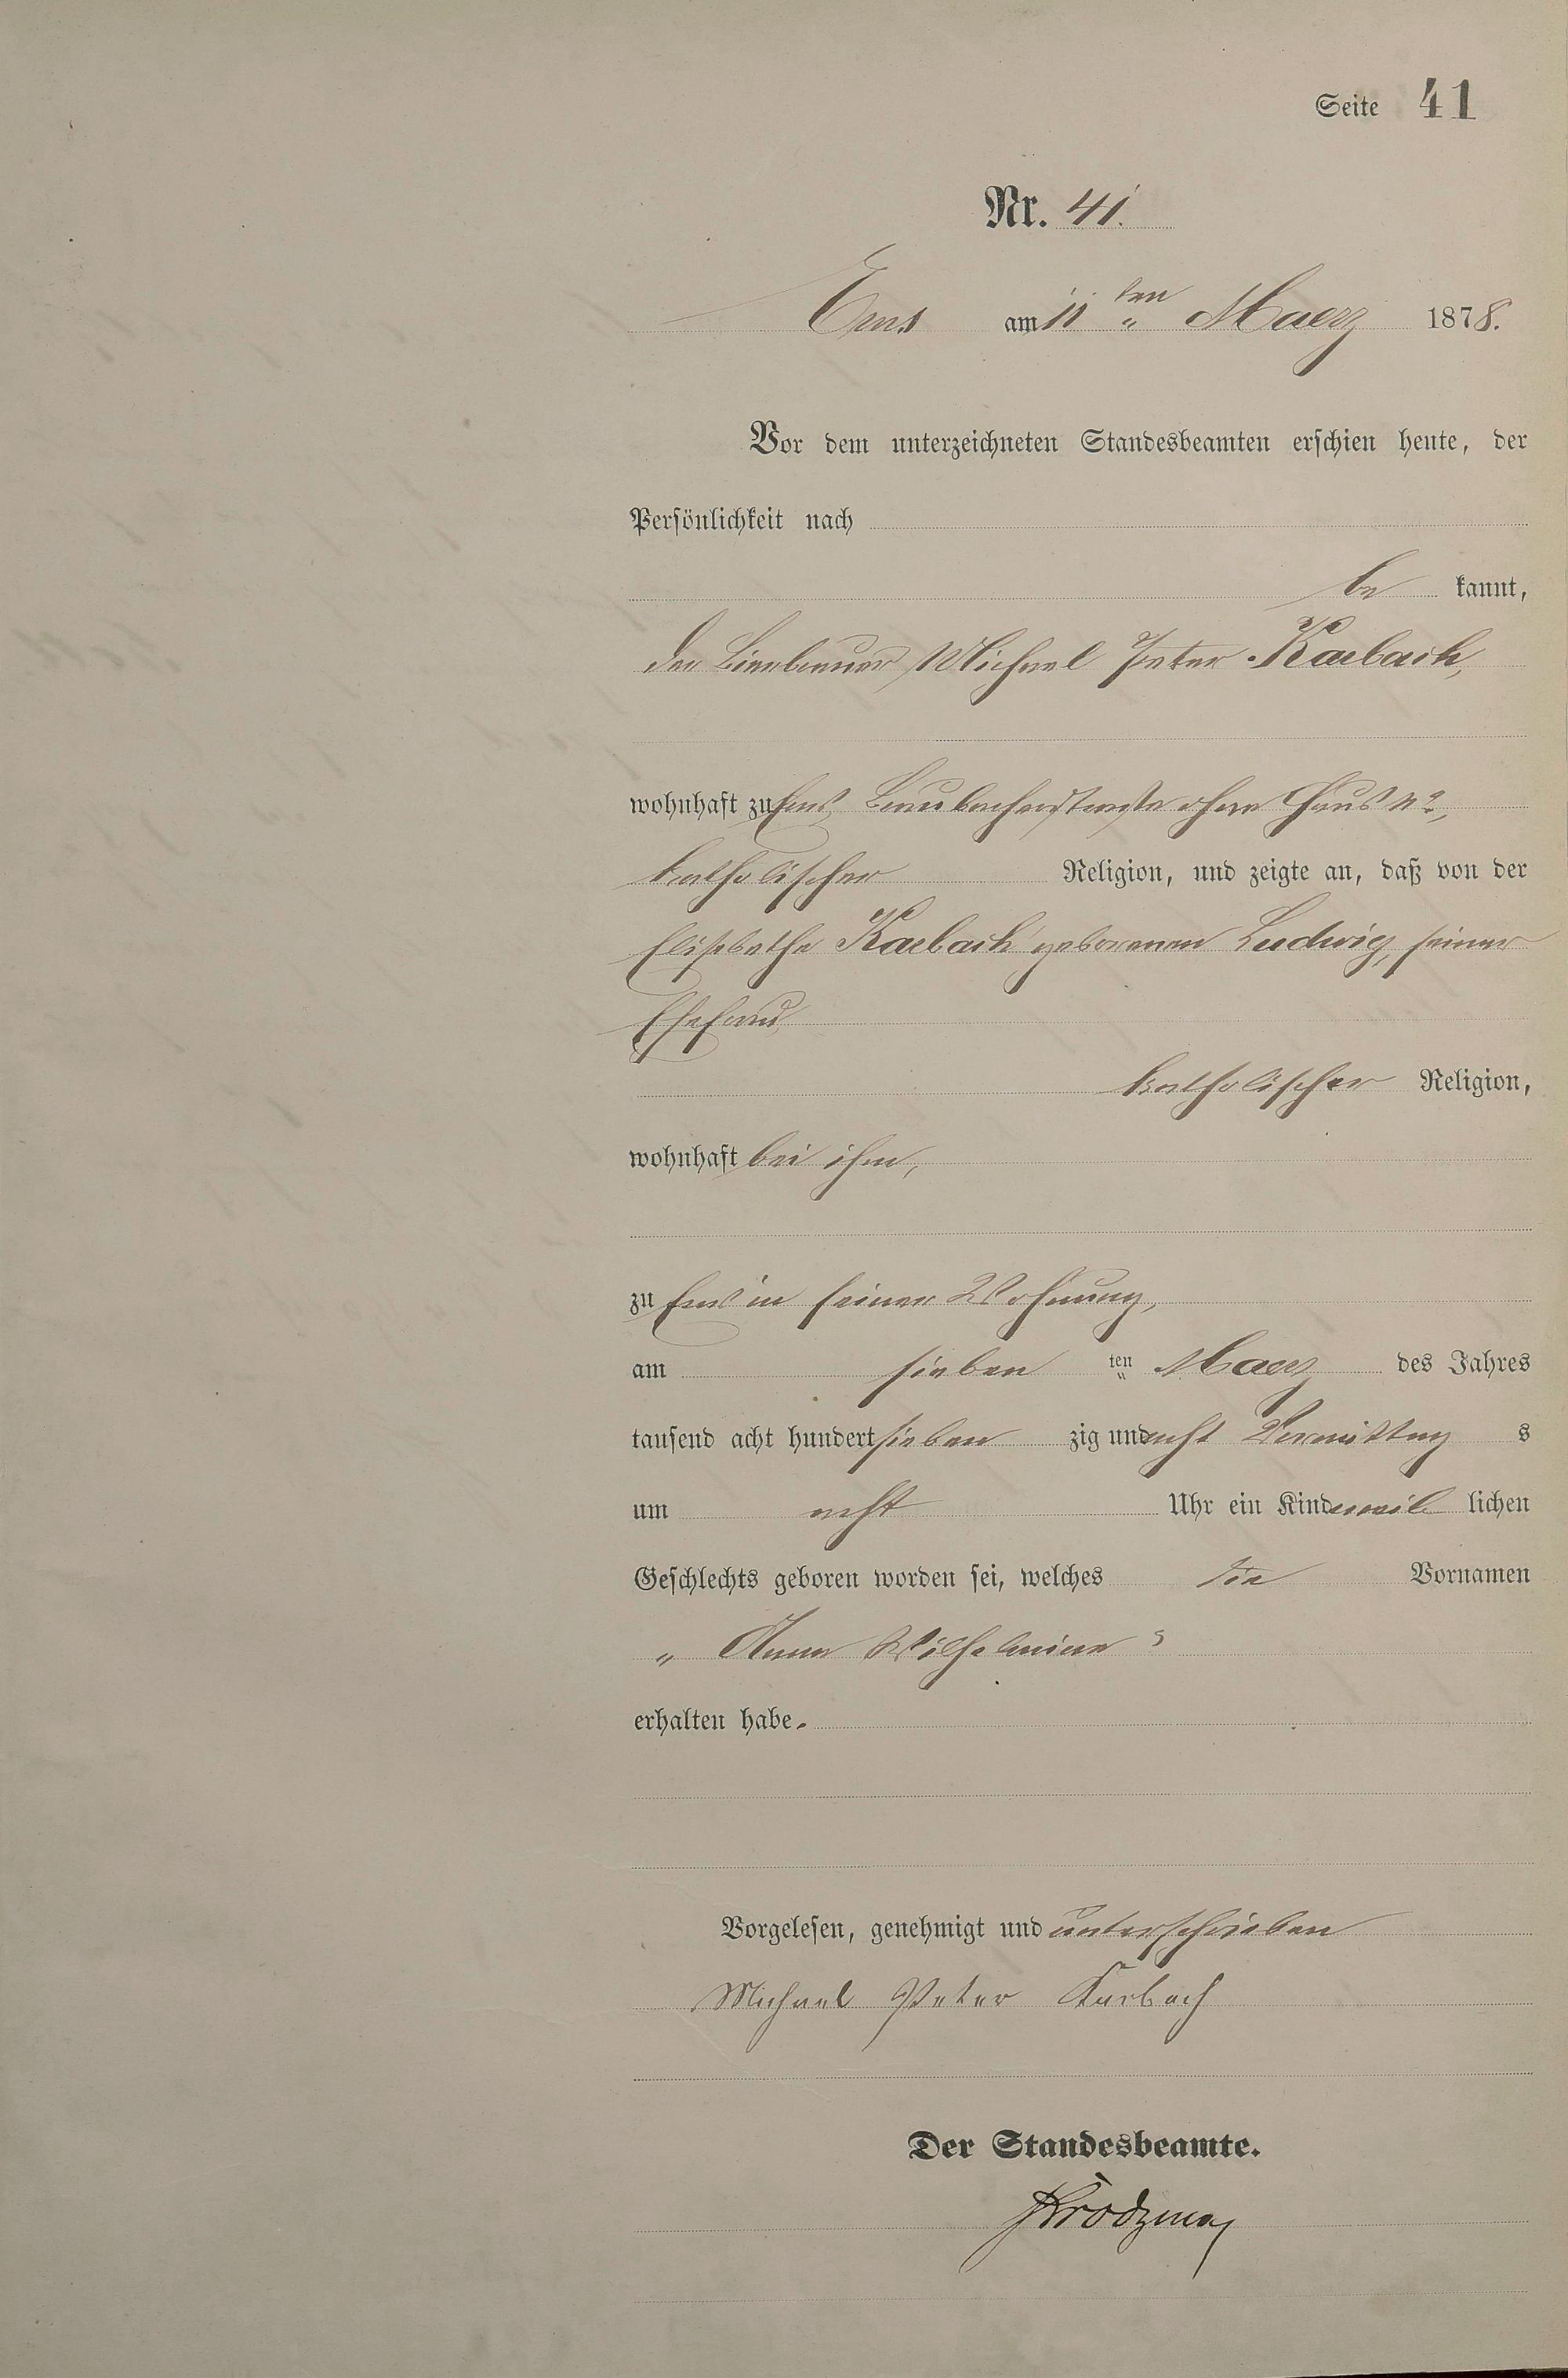 Seite 41
Nr. 41.
Ems am 11 ten " Maerz 1878.
Vor dem unterzeichneten Standesbeamten erschien heute, der
Persönlichkeit nach
be kannt,
der Bierbrauer Michael Peter Karbach,
wohnhaft zu Ems, ohne Haus No,
katholischer Religion, und zeigte an, daß von der
Elisabethe Karbach geborenen Ludwig, seiner
Ehefrau
katholischer Religion,
wohnhaft bei ihm,
zu Ems in seiner Wohnung,
am sieben ten " Maerz des Jahres
tausend acht hundert sieben zig und acht Vormittag s
um acht Uhr ein Kind weib lichen
Geschlechts geboren worden sei, welches die Vornamen
„ Anna Wilhelmine "
erhalten habe.
Vorgelesen, genehmigt und unterschrieben
Michael Peter Karbach
Der Standesbeamte.